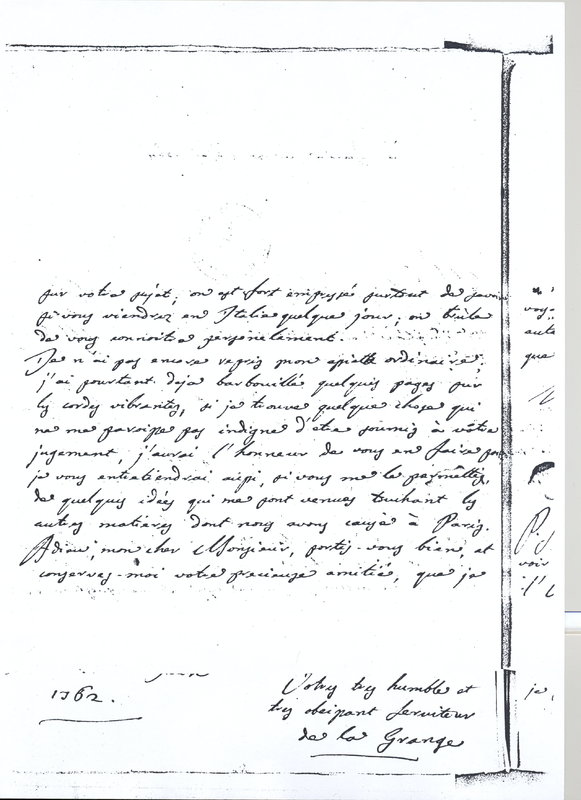 sur votre sujet; on est fort empressé surtout de savoir
si vous viendrez en Italie quelque jour; on brule
de vous connoitre personelement.
Je n'ai pas encore repris mon ordinaire;
j'ai pourtant deja barbouillé quelques pages sur
les cordes vibrantes, si je trouve quelque chose qui
ne me paroisse pas indigne d'etre soumis à vôtre
jugement, j'aurai l'honneur de vous en faire part
je vous entretiendrai aussi, si vous me le permettés,
de quelques idées qui me sont venues touchant les
autres matieres dont nous avons causé à Paris.
Adieu, mon cher Monsieur, portés-vous bien, et
conservez-moi votre precieuse amitié, que je
1762.
Votre tres humble et
tres obeissant serviteur
de la Grange
vous
aute
que
voir
je